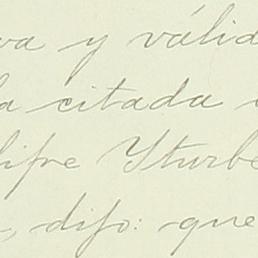 va y válid
la citada
lipe Yturbe
, dijo: que